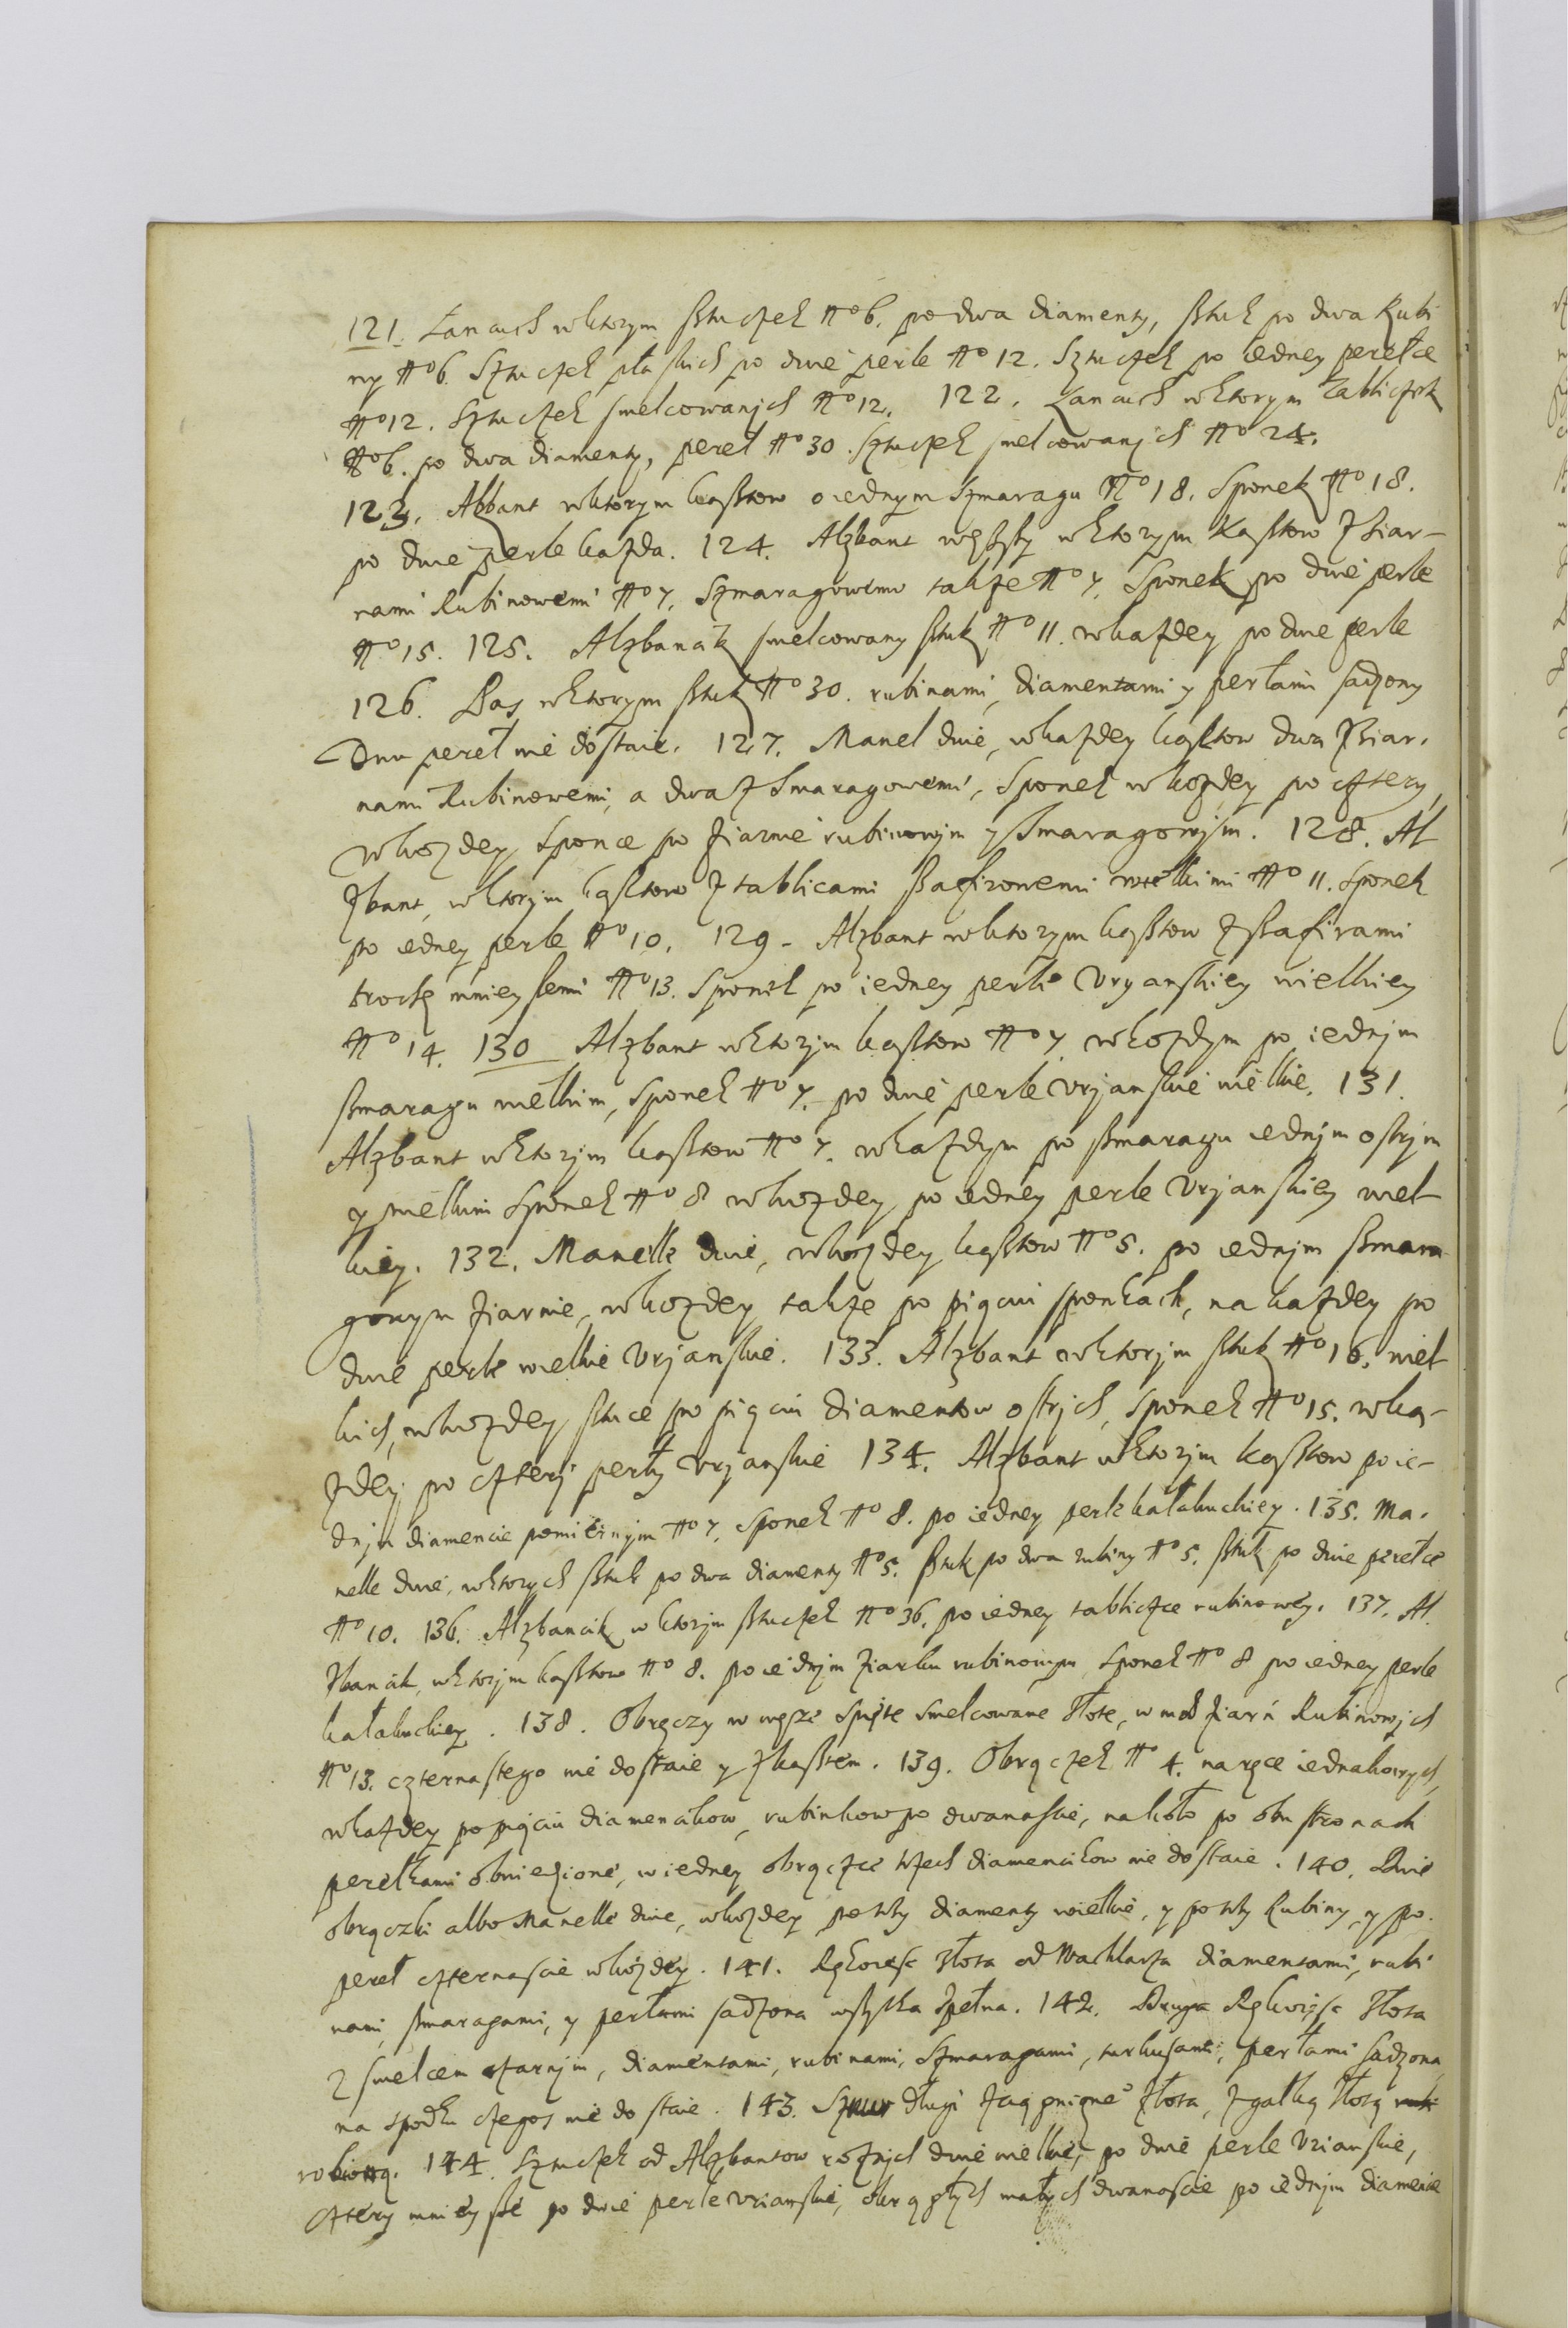 121. Łancuch wktorym sztuczek No 6. po dwa diamenty, sztuk po dwa Rubi
ny No 6. Sztuczek płaskich po dwie perle No 12. Sztuczek po iedney perełce
No 12. Sztuczek smelcowanych No 12. 122. Łancuch wktorym Tabliczek
No 6. po dwa diamenty, pereł No 30. Sztuczek smelcowanych No 24.
123. Alzbant wktorym kasztow o iednym Szmaragu No 18. Sponek No 18.
po dwie perle kazda. 124. Alzbant węższy wktorym Kasztow z ziar-
nami Rubinowemi No 7. Szmaragowemi takze No 7. Sponek po dwie perle
No 15. 125. Alzbancik smelcowany sztuk No 11. wkazdey po dwie perle
126. Pas wktorym sztuk No 30. rubinami, diamentami y perłami sadzony
Dwu pereł nie dostaie. 127. Manel dwie, wkazdey kasztow dwa z ziar.
nami Rubinowemi, a dwa z Smaragowemi, Sponek wkazdey po cztery,
wkozdey Sponce po ziarnie rubinowym y Smaragowym. 128. Al
zbant, wktorym kasztow z tablicami szafirowemi wielkimi No 11. Sponek
po iedney perle No 10. 129. Alzbant wktorym kasztow z szafirami
trochę mnieyszemi No 13. Sponek po iedney perle Vryanskiey wielkiey
No 14. 130 Alzbant wktorym kasztow No 7. wkozdym po iednym
szmaragu wielkim, Sponek No 7. po dwie perle Vrjanskie wielkie. 131.
Alzbant wktorym kasztow No 7. wkazdym po szmaragu iednym ostrym
y wielkim Sponek No 8 wkozdey po iedney perle Vrjanskiey wiel
kiey. 132. Manelle dwie, wkozdey kasztow No 5. po iednym szmara
gowym ziarnie, wkozdey takze po pięciu sponkach, na kazdey po
dwie perle wielkie Vrjanskie. 133. Alzbant wktorym sztuk No 16. wiel
kich, wkozdey sztuce po pięciu diamentow ostrych, Sponek No 15. wka-
zdey po cztery perły Vrjanskie 134. Alzbant wktorym kasztow po ie-
dnym diamencie pomiernym No 7. Sponek No 8. po iedney perle kałakuckiey. 135. Ma.
nelle dwie, wktorych sztuk po dwa diamenty No 5. sztuk po dwa rubiny No 5. sztuk po dwie perełce
No 10. 136. Alzbancik wktorym sztuczek No 36. po iedney tabliczce rubinowey. 137. Al
zbancik, wktorym kasztow No 8. po iednym ziarku rubinowym Sponek No 8 po iedney perle
kałakuckiey. 138. Obręczy w węże spięte smelcowane złote, w nich ziarń Rubinowych
No 13. czternastego nie dostaie y z kasztem. 139. Obrączek No 4. na ręce iednakowych,
wkazdey po pięciu diamencikow, rubinkow po dwanascie, na koło po obu stronach
perełkami obwiedzione, w iedney obrączce trzech diamencikow nie dostaie. 140. Dwie
obrączki albo Manelle dwie, wkozdey po trzy diamenty wielkie, y po trzy Rubiny, y po.
pereł czternascie wkozdey. 141. Rękoieść złota od Wachlarza diamentami, rubi
nami, szmaragami, y perłami sadzona wszytka zpełna. 142. Druga Rękoieść złota
z smelcem czarnym, diamentami, rubinami, Szmaragami, turkusami, perłami sadzona,
na spodku czegos nie dostaie. 143. Sznur długi z ciągnionego złota, z gałką złotą
robioną. 144. Sztuczek od Alzbantow roznych dwie wielkie, po dwie perle Vrianskie,
cztery mnieysze po dwie perle Vrianskie, okrągłych małych dwanascie po iednym diamencie